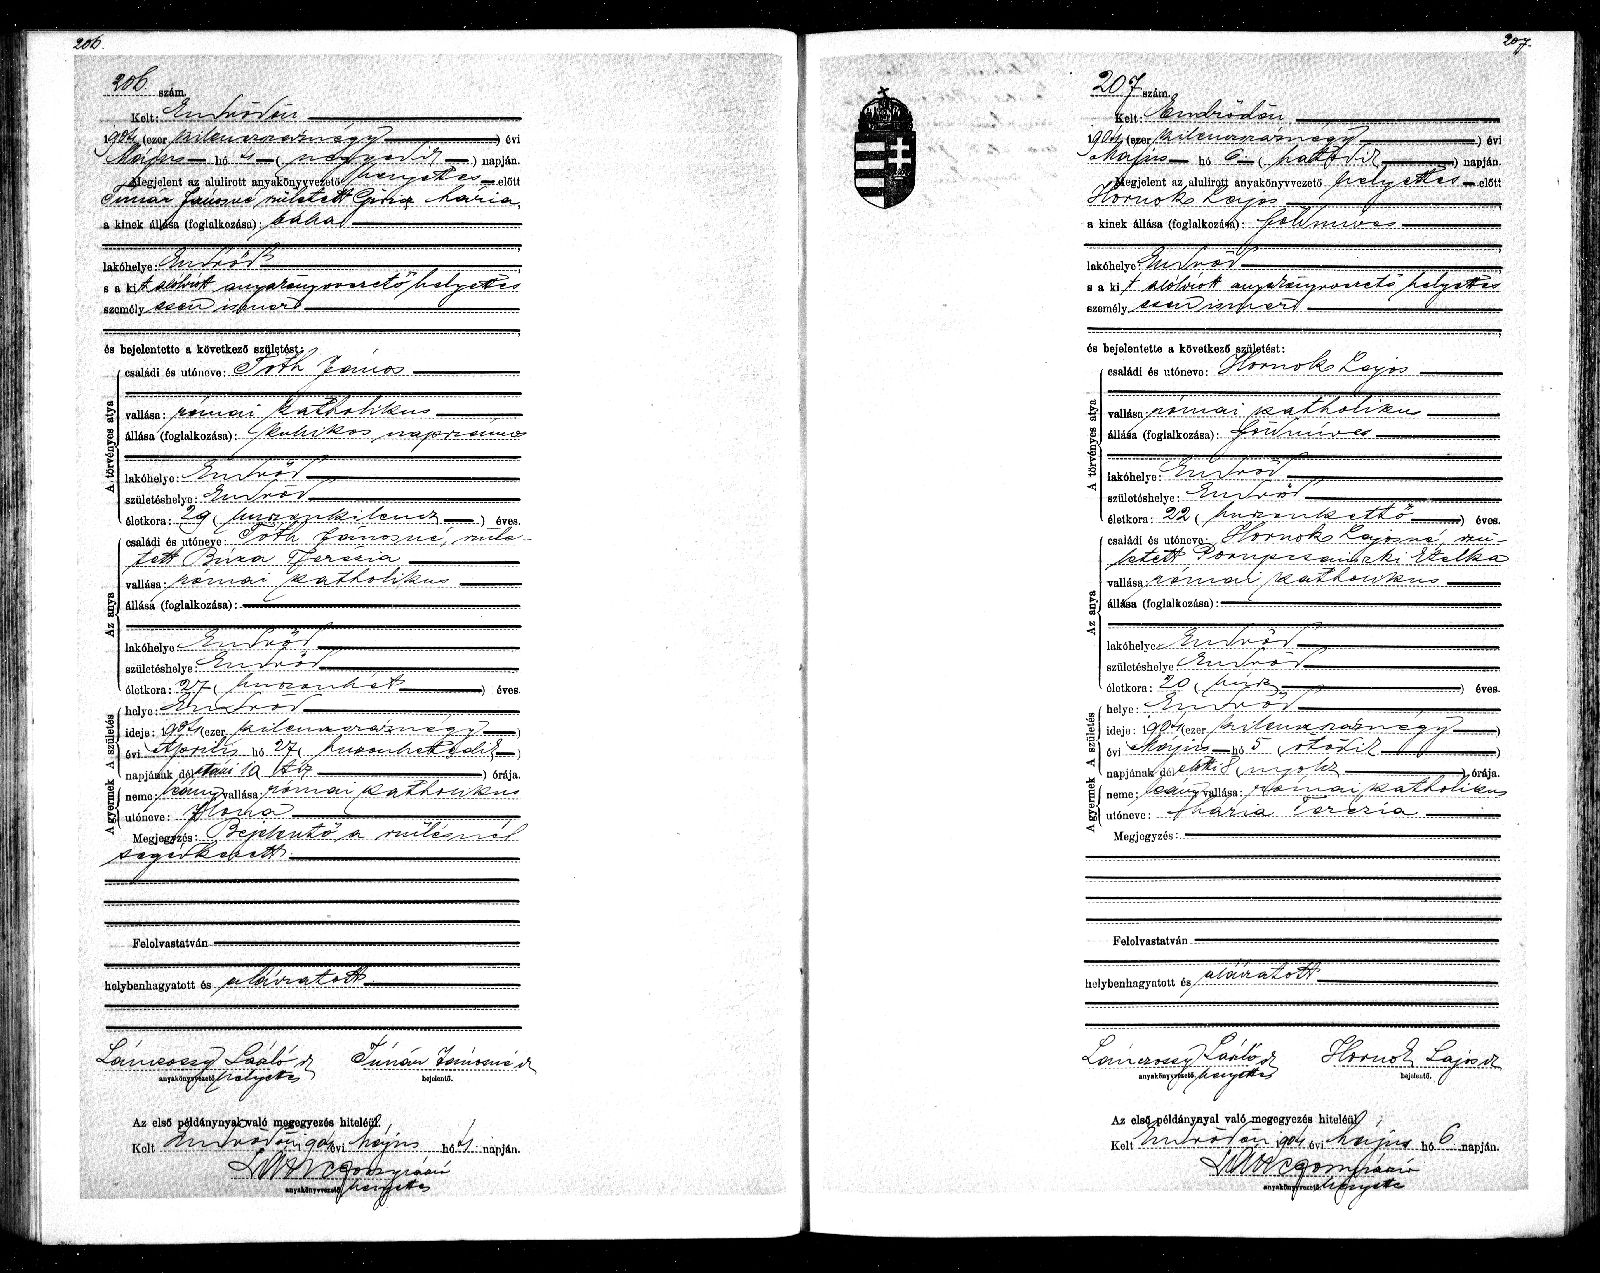 206.
206. szám.
Kelt: Endrődön
1904 (ezer kilenczszáznégy) évi
Május hó 4 (negyedik) napján.
Megjelent az alulirott anyakönyvvezető helyettes előtt
Timár Jánosné született Mária,
a kinek állása (foglalkozása): bába
lakóhelye: Endrőd
s a kit alólirott anyakönyvvezető helyettes
személyesen ismer
és bejelentette a következő születést:
A törvényes atya
családi és utóneve: Tóth János
vallása: római katholikus
állása (foglalkozása): kubikos napszámos
lakóhelye: Endrőd
születéshelye: Endrőd
életkora: 29 (huszonkilencz) éves.
Az anya
családi és utóneve: Tóth Jánosné, szüle-
tett Búza Terézia
vallása: római katholikus
állása (foglalkozása):
lakóhelye: Endrőd
születéshelye: Endrőd
életkora: 27 (huszonhét) éves.
A születés
helye: Endrőd
ideje: 1904 (ezer kilenczszáznégy)
évi Április hó 27 (huszonhetedik)
napjának délutáni 10 tíz órája.
A gyermek
neme: leány vallása: római katholikus
utóneve: Ilona
Megjegyzés: Bejelentő a szülésnél
segédkezett.
Felolvastatván
helybenhagyatott és aláíratott
László Jánosné
anyakönyvvezető helyettes bejelentő.
Az első példánynyal való megegyezés hiteléül.
Kelt Endrődön 1904 évi Május hó 4 napján.
anyakönyvvezető helyettes
207.
207 szám.
Kelt: Endrődön
1904 (ezer kilenczszáznégy) évi
Május hó 6 (hatodik) napján.
Megjelent az alulirott anyakönyvvezető helyettes előtt
Hornok Lajos
a kinek állása (foglalkozása): földmíves
lakóhelye: Endrőd
s a kit alólirott anyakönyvvezető helyettes
személyesen ismer
és bejelentette a következő születést:
A törvényes atya
családi és utóneve: Hornok Lajos
vallása: római katholikus
állása (foglalkozása): földmíves
lakóhelye: Endrőd
születéshelye: Endrőd
életkora: 22 (huszonkettő) éves.
Az anya
családi és utóneve: Hornok Lajosné, szü-
letett Etelka
vallása: római katholikus
állása (foglalkozása):
lakóhelye: Endrőd
születéshelye Endrőd
életkora: 20 (húsz) éves.
A születés
helye: Endrőd
ideje: 1904 (ezer kilenczszáznégy)
évi Május hó 5 (ötödik)
napjának délelőtti 8 nyolcz órája.
A gyermek
neme: leány vallása: római katholikus
utóneve: Mária Terézia
Megjegyzés:
Felolvastatván
helybenhagyatott és aláíratott
László Hornok Lajos
anyakönyvvezető helyettes bejelentő.
Az első példánynyal való megegyezés hiteléül.
Kelt Endrődön 1904 évi Május hó 6 napján.
anyakönyvvezető helyettes